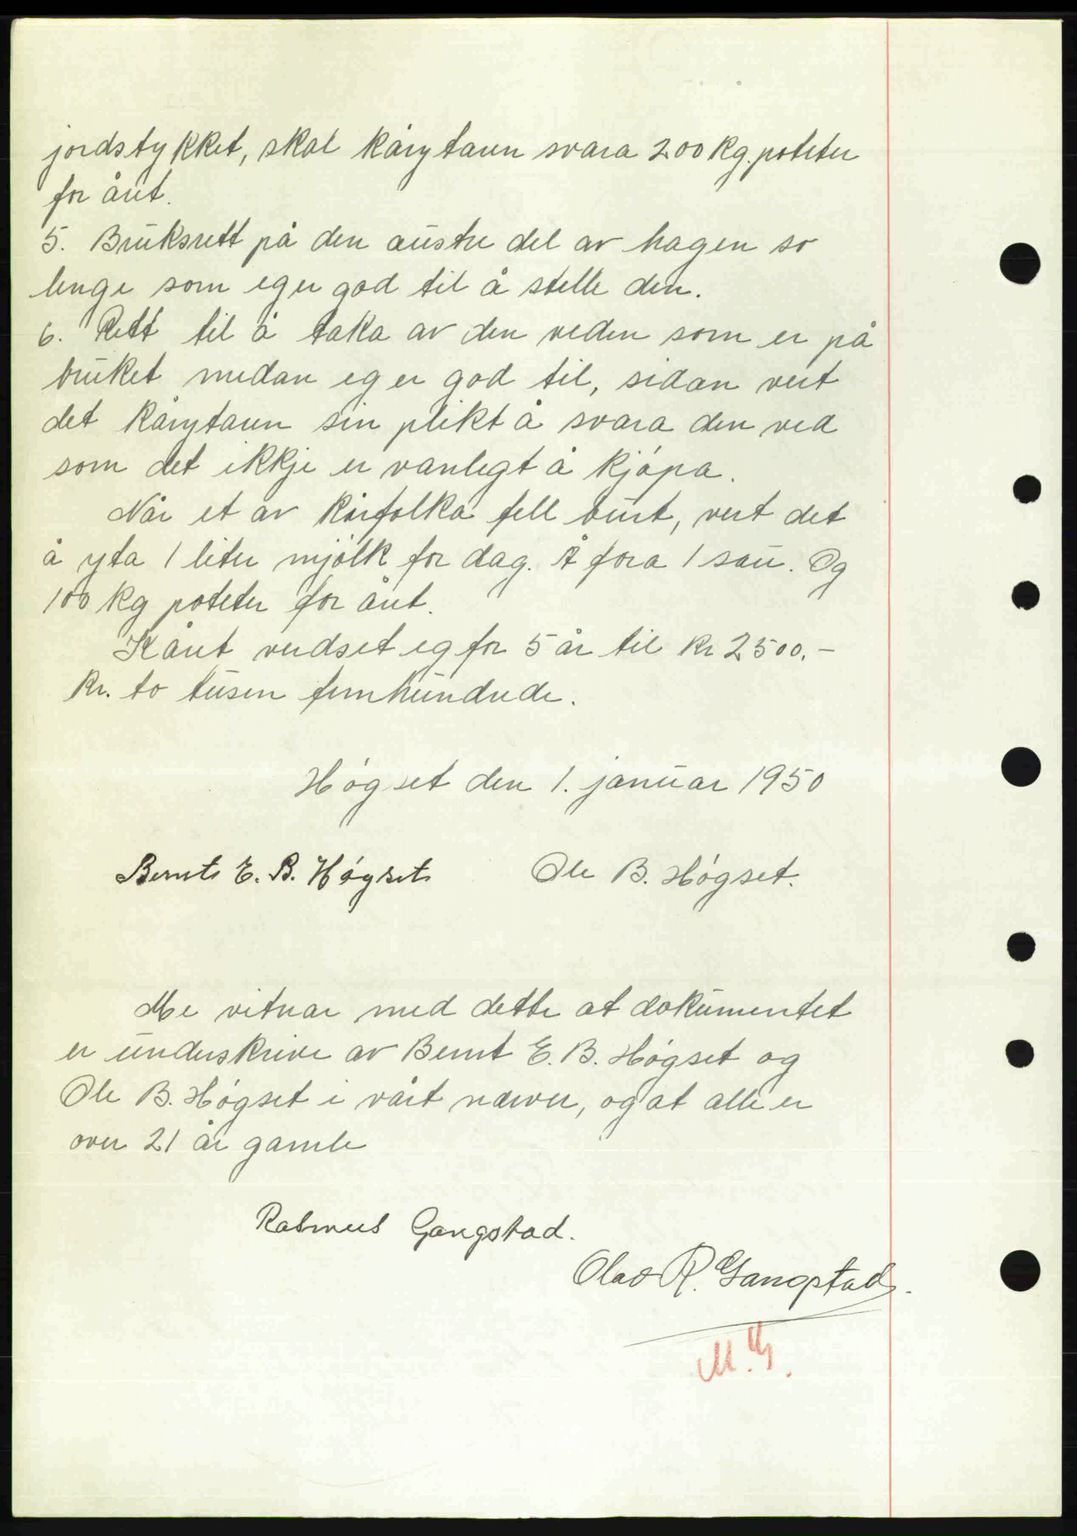 jordstykket, skal kårytaren svara 200 kg. poteter
for året.
5. Bruksrett på den austre del av hagen so
lenge som eg er god til å stelle den.
6. Rett til å taka av den veden som er på
bruket medan eg er god til, sidan vert
det kårytaren sin plikt å svara den ved
som det ikkje er vanlegt å kjøpa.
Når et av kårfolka fell burt, vert det
å yta 1 liter mjølk for dag. Å fora 1 sau. Og
100 kg poteter for året.
Kåret verdset eg for 5 år til kr 2500.-
Kr. to tusen femhundrede.
Høgset den 1. januar 1950
Bernt E. B. Høgset Ole B. Høgset.
Me vitnar med dette at dokumentet
er underskrive av Bernt E. B. Høgset og
Ole B. Høgset i vårt nærver, og at alle er
over 21 år gamle
Rasmus Gangstad.
Olav R. Gangstad.
M.G.